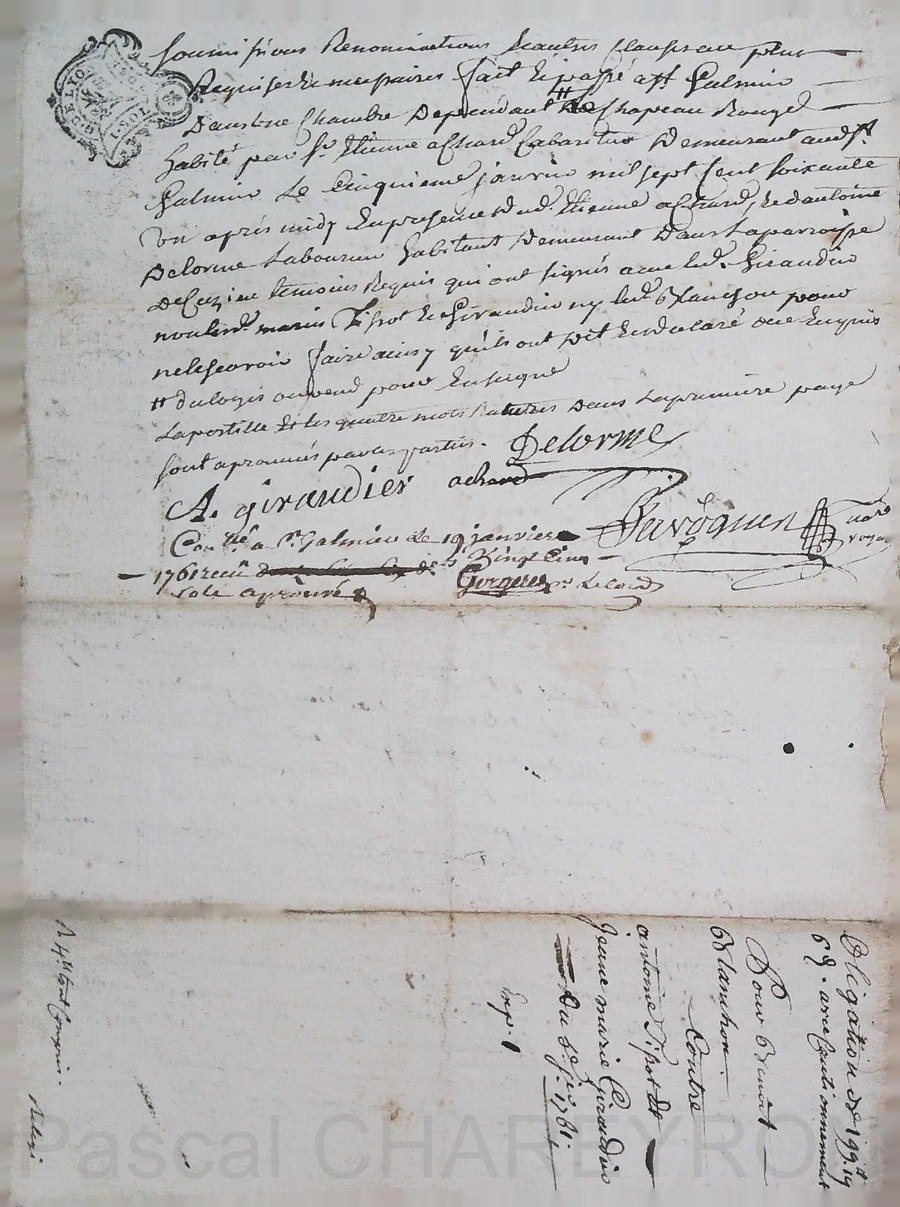 soumissions Renonciations & autres clauses au plus
Requises & necessaires fait & passé a St Galmier
Dans une chambre Dependant # de chapeau Rouge
habité par Sr Etienne achard Cabaretier Demeurant aud. St
Galmier Le Cinquieme janvier mil sept cent soixante
un après midy En presence dud. Etienne achard, & d'antoine
Delorme Laboureur habitant Demeurant Dans La parroisse
De Cuzieu temoins Requis qui ont signés avec led. Giraudier
non led. Tissot & Giraudier ny led. Blanchon pour
ne le scavoir faire ainsy qu'ils ont dit & declaré de ce Enquis
# du logis ou pend pour Enseigne
Lapostille & les quatre mots Raturés dans La premiere page
sont aprouvés par les parties.
Delorme
A. giraudier achard
Con.llé a St Galmier Le 19 janvier
1761 recu Vingt cinq
sols aprouvé
Obligation de 199.tt 19
6 d. avec Cautionnement
Pour Benoit
Blanchon
Contre
antoine Tissot &
Jeanne marie Giraudier
Du 5e Jer. 1761.
Exp. 1
Pascal CHAREYRON